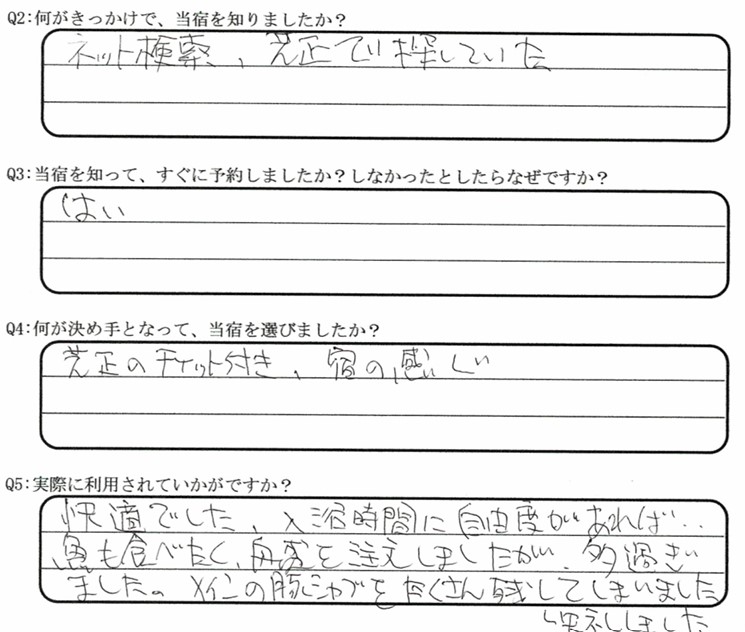 Q2:何がきっかけで、当宿を知りましたか？
ネット検索、芝正で探していた
Q3:当宿を知って、すぐに予約しましたか？しなかったとしたらなぜですか？
はい
Q4:何が決め手となって、当宿を選びましたか？
芝正のチケット付き、宿の感じ
Q5:実際に利用されていかがですか？
快適でした、入浴時間に自由度があれば‥
魚も食べたく、舟盛を注文しましたが、多過ぎ
ました。メインの豚シャブをたくさん残してしまいました
失礼しました